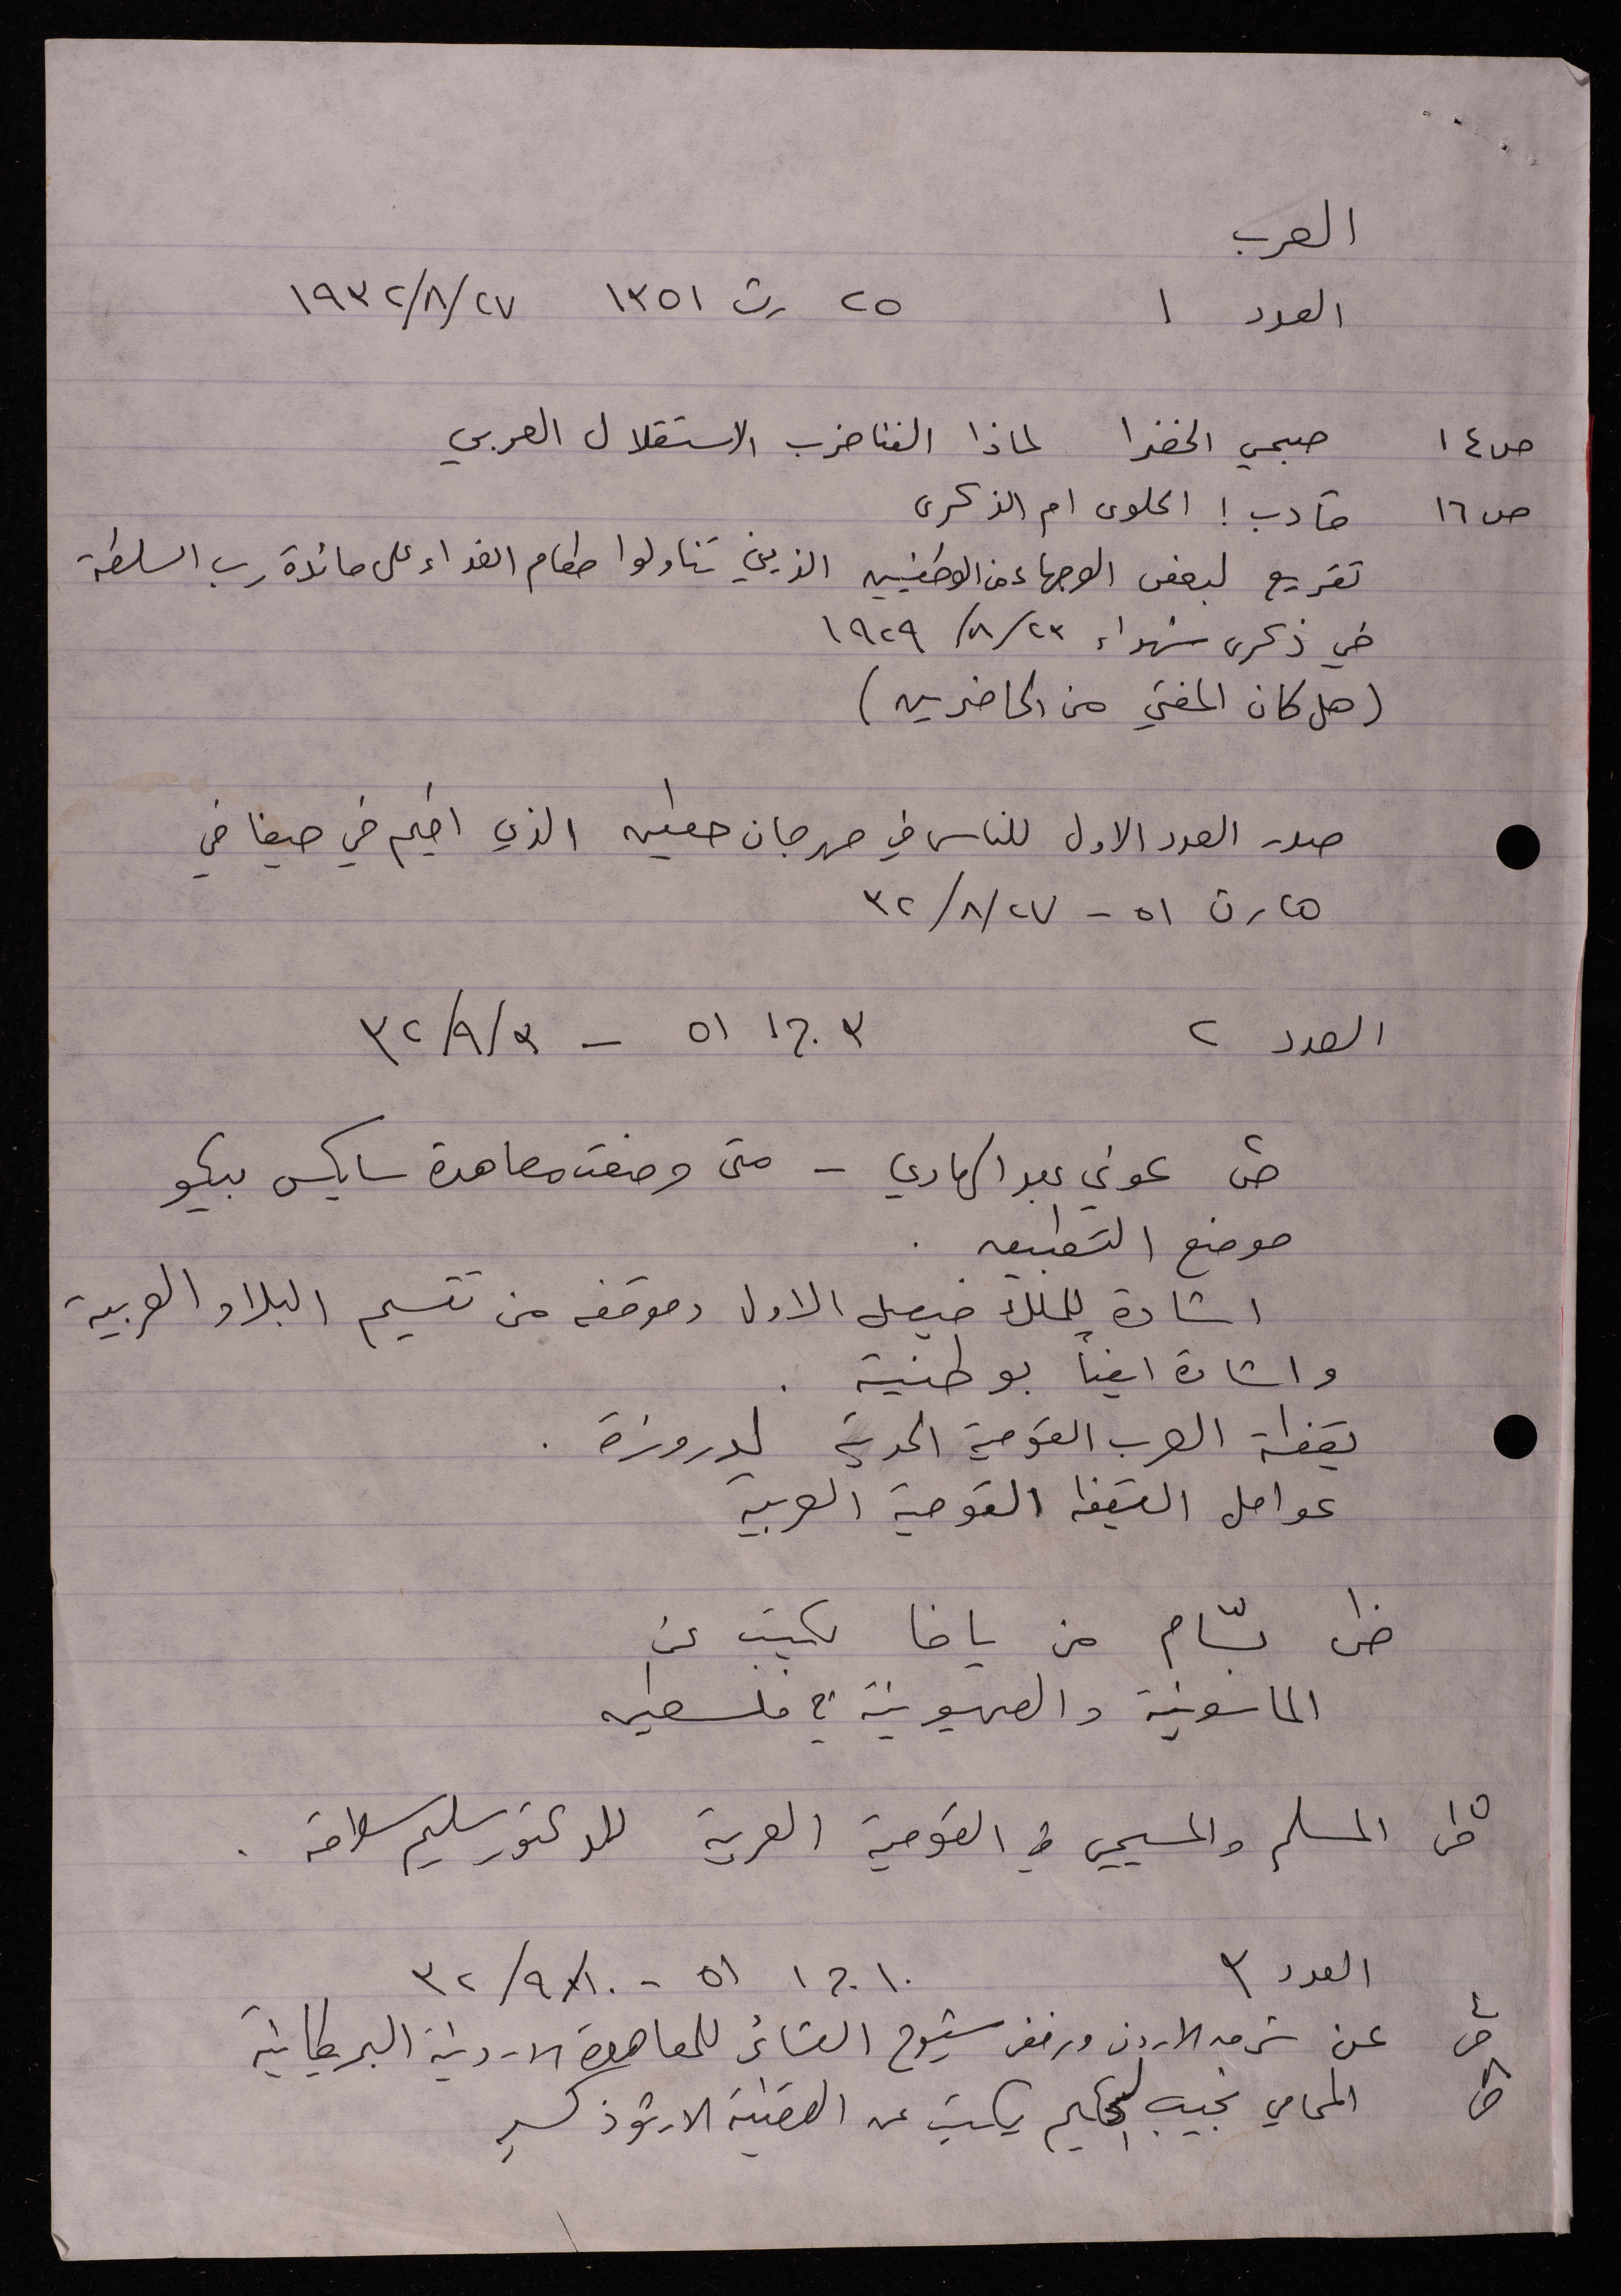 العرب
العدد ١ ٢٥ رت ١٣٥١ ١٩٣٢/٨/٢٧
ص ١٤ صبحي الخضرا لماذا الفنا حزب الاستقلال العربي
ص ١٦ مآدب! الحلوى ام الذكرى
تقريع لبعض الوجهاء من الوطنيين الذين تناولوا طعام الغداء على مائدة رب السلطة
في ذكرى شهداء ٢٣/٨/١٩٢٩
(هل كان المفتي من الحاضرين)
صدر العدد الاول للناس في مهرجان حطين الذي اقيم في حيفا في
٢٥ رت ٥١ - ٣٢/٨/٢٧
العدد ٢ ٣ ج١ ٥١ - ٣٢/٩/٣
ص٢ عوني عبد الهادي - متى وضعت معاهدة سايكس بيكو
موضع التطبيق.
اشادة بالملك فيصل الاول وموقفه من تقسيم البلاد العربية
واشادة ايضاً بوطنية.
يقظة العرب القومية الحديثة لدروزة.
عوامل اليقظة القومية العربية
بسّام من يافا يكتب عن
الماسونية والصهيونية في فلسطين
المسلم والمسيحي في القومية العربية للدكتور سليم سلامة.
العدد ٣ ١٠ ج١ ٥١ - ٣٢/٩/١٠
عن شرق الاردن ورفض شيوخ العشائر للمعاهدة الاردنية البريطانية
المحامي نجيب الحكيم يكتب عن القضية الارثوذكسية